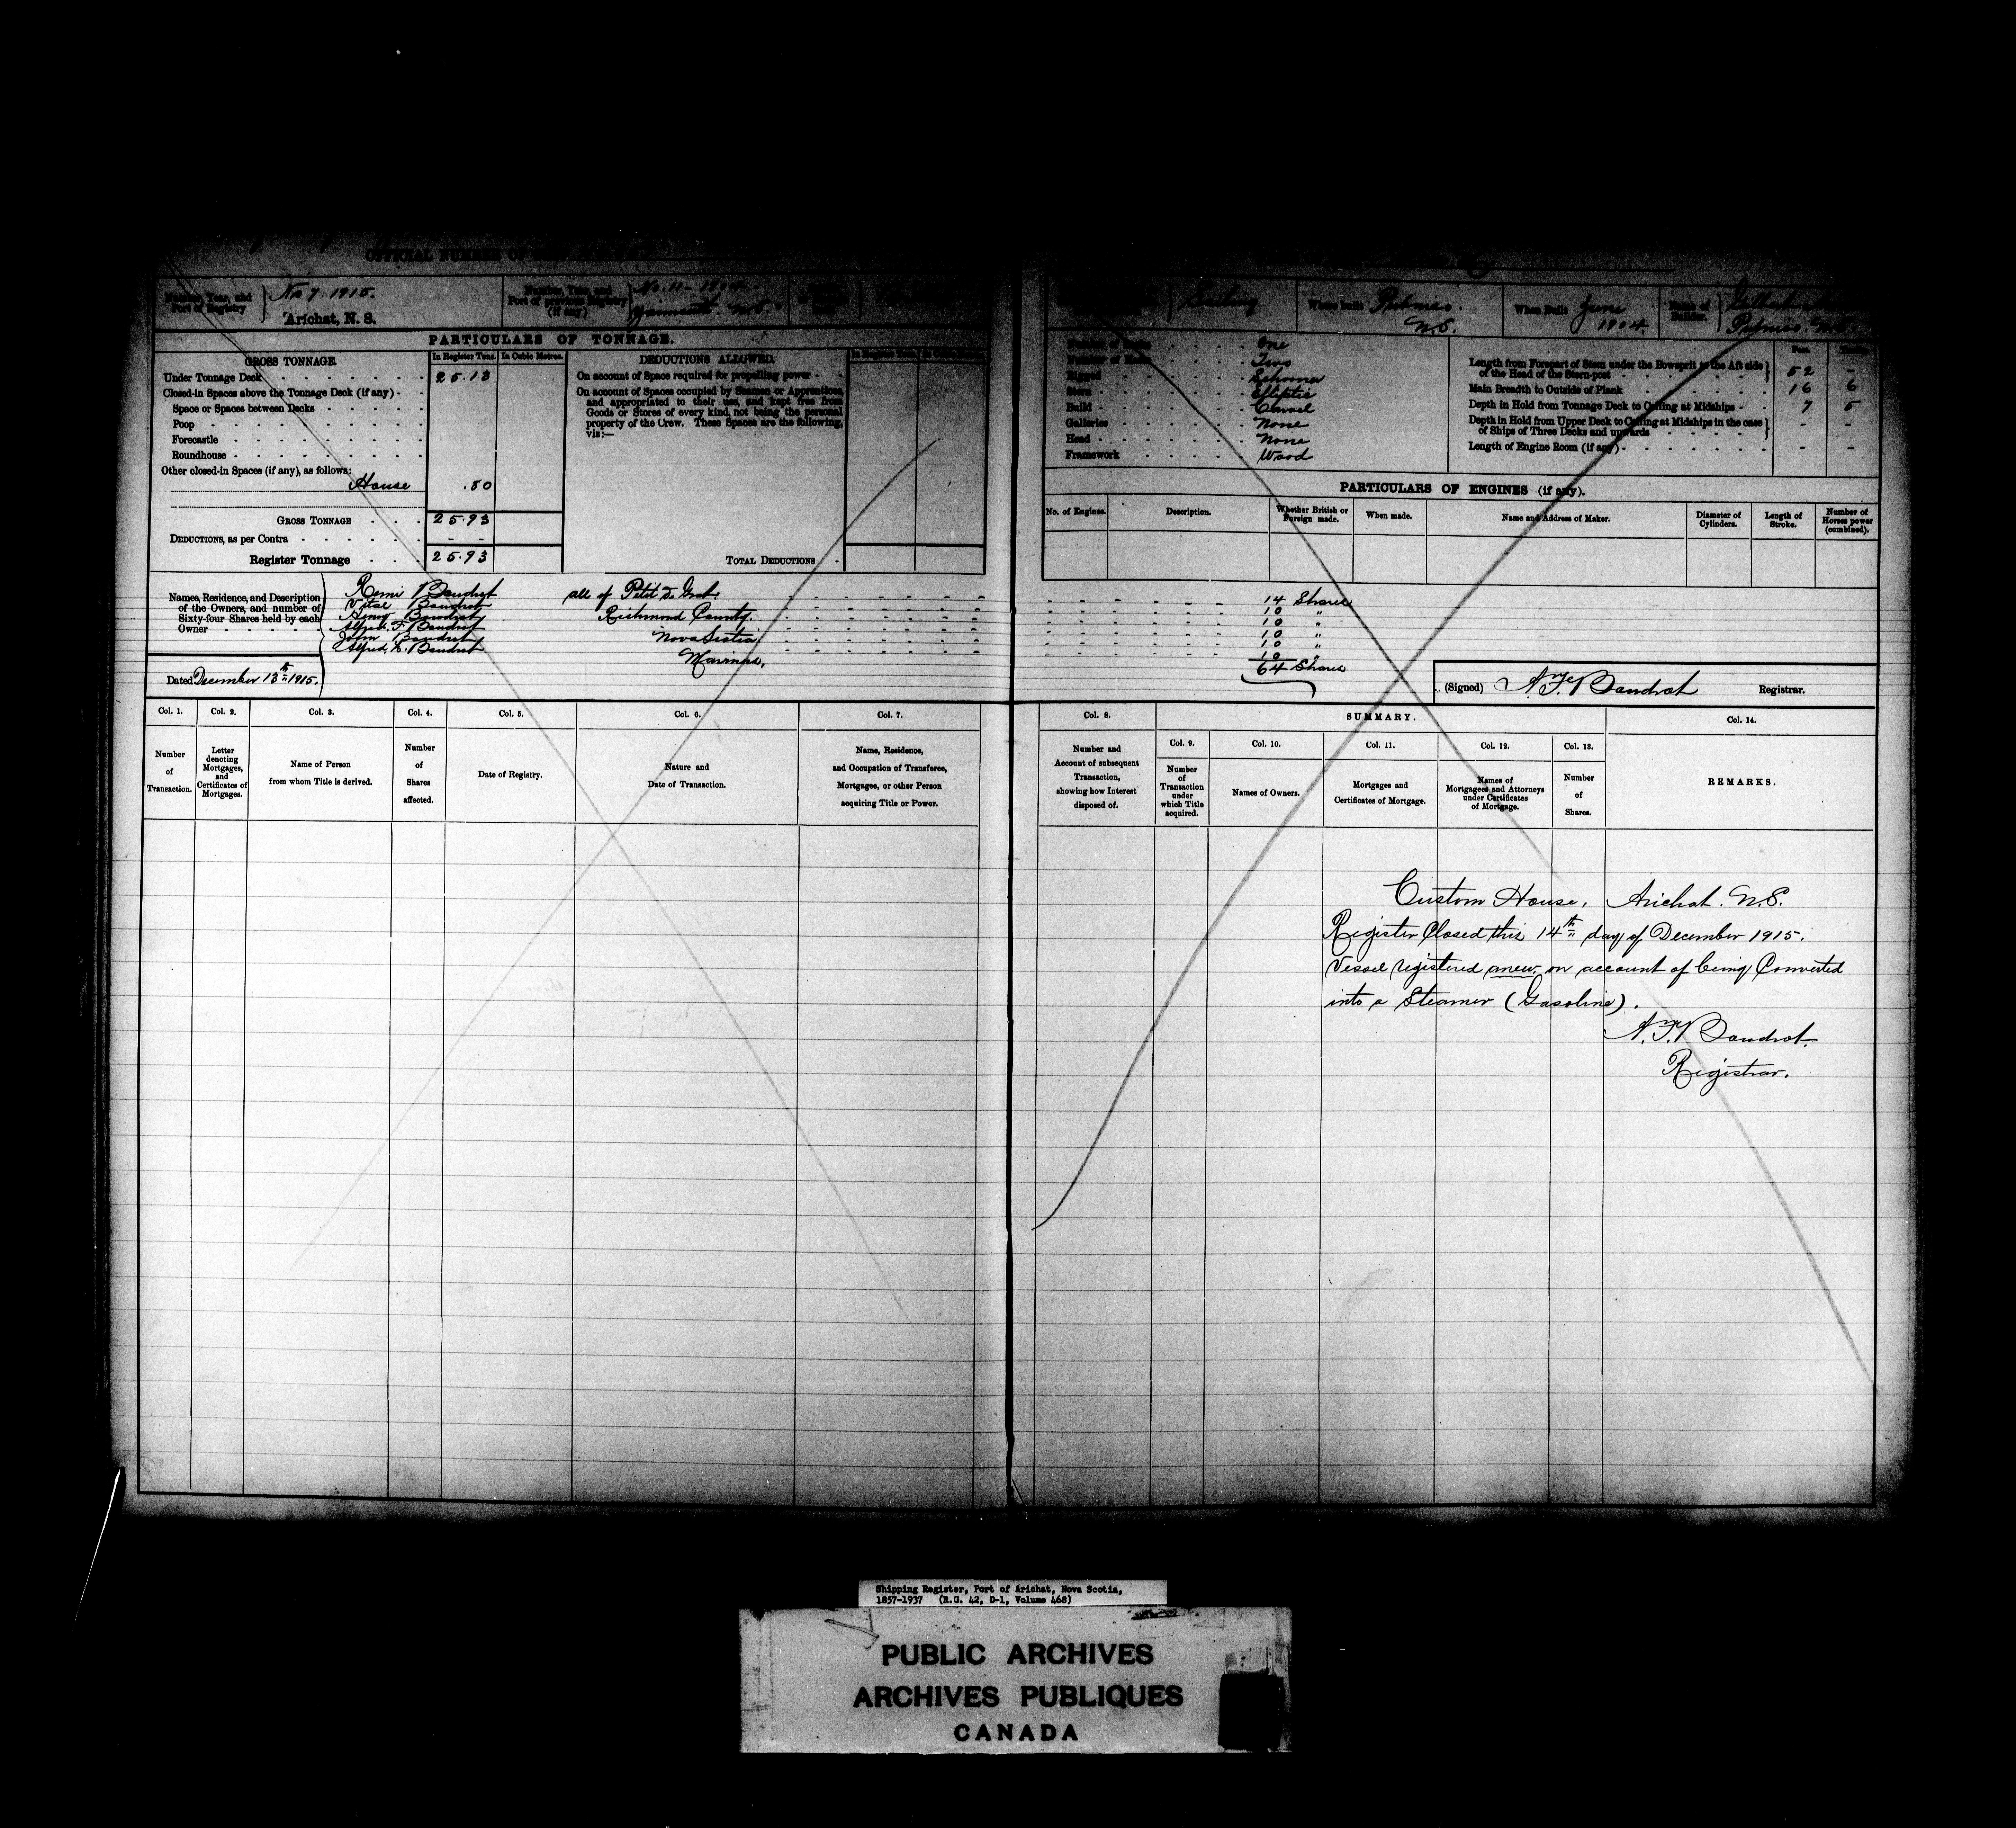 OFFICIAL NUMBER OF
Number, Year, and Port of Registry } No 7. 1915. Arichat, N. S.
Number, Year, and Port of previous Registry (if any) } No. 11 - 1904. Yarmouth. N.S.
Sailing
Where built Pubnico. N.S.
When Built June 1904.
Name of Builder. Pubnico. N.S.
PARTICULARS OF TONNAGE.
GROSS TONNAGE. In Register Tons. In Cubic Metres.
Under Tonnage Deck 25.13
Closed-in Spaces above the Tonnage Deck (if any)
Space or Spaces between Decks
Poop
Forecastle
Roundhouse
Other closed-in Spaces (if any), as follows:
House .80
GROSS TONNAGE 25.93
DEDUCTIONS, as per Contra - -
Register Tonnage 25.93
DEDUCTIONS ALLOWED.
On account of Space required for propelling power
On account of Spaces occupied by Seamen or Apprentices,
and appropriated to their use, and kept free from
Goods or Stores of every kind, not being the personal
property of the Crew. These Spaces are the following,
viz:—
TOTAL DEDUCTIONS
Number of Decks One
Number of Masts Two
Rigged Schooner
Stern Elliptic
Build Carvel
Galleries None
Head None
Framework Wood
Feet.
Length from Forepart of Stem under the Bowsprit to the Aft side of the Head of the Stern-post } 52 -
Main Breadth to Outside of Plank 16 6
Depth in Hold from Tonnage Deck to Ceiling at Midships 7 5
Depth in Hold from Upper Deck to Ceiling at Midships in the case of Ships of Three Decks and upwards } - -
Length of Engine Room (if any) - -
PARTICULARS OF ENGINES (if any).
No. of Engines. Description. Whether British or Foreign made. When made. Name and Address of Maker. Diameter of Cylinders. Length of Stroke. Number of Horses power (combined).
Names, Residence, and Description
of the Owners, and number of
Sixty-four Shares held by each
Owner
Remi Boudrot all of Petit de Grat 14 Shares
Vital Boudrot 10 "
Boudrot Richmond County. 10 "
Alfred. F. Boudrot 10 "
John Boudrot Nova Scotia 10 "
Alfred. Boudrot Mariners. 10 "
64 Shares
Dated December 13th 1915.
(Signed) Boudrot Registrar.
Col. 1. Number of Transaction.
Col. 2. Letter denoting Mortgages, and Certificates of Mortgages.
Col. 3. Name of Person from whom Title is derived.
Col. 4. Number of Shares affected.
Col. 5. Date of Registry.
Col. 6. Nature and Date of Transaction.
Col. 7. Name, Residence, and Occupation of Transferee, Mortgages, or other Person acquiring Title or Power.
Col. 8. Number and Account of subsequent Transaction, showing how Interest disposed of.
SUMMARY.
Col. 9. Number of Transaction under which Title acquired.
Col. 10. Names of Owners.
Col. 11. Mortgages and Certificates of Mortgage.
Col. 12. Names of Mortgagees and Attorneys under Certificates of Mortgage.
Col. 13. Number of Shares.
Col. 14. REMARKS.
Custom House, Arichat. N.S.
Register Closed this 14th day of December 1915.
Vessel registered anew on account of being Converted
into a Steamer (Gasoline).
Boudrot.
Registrar.
Shipping Register, Port of Arichat, Nova Scotia,
1857-1937 (R.G. 42, D-1, Volume 468)
PUBLIC ARCHIVES
ARCHIVES PUBLIQUES
CANADA